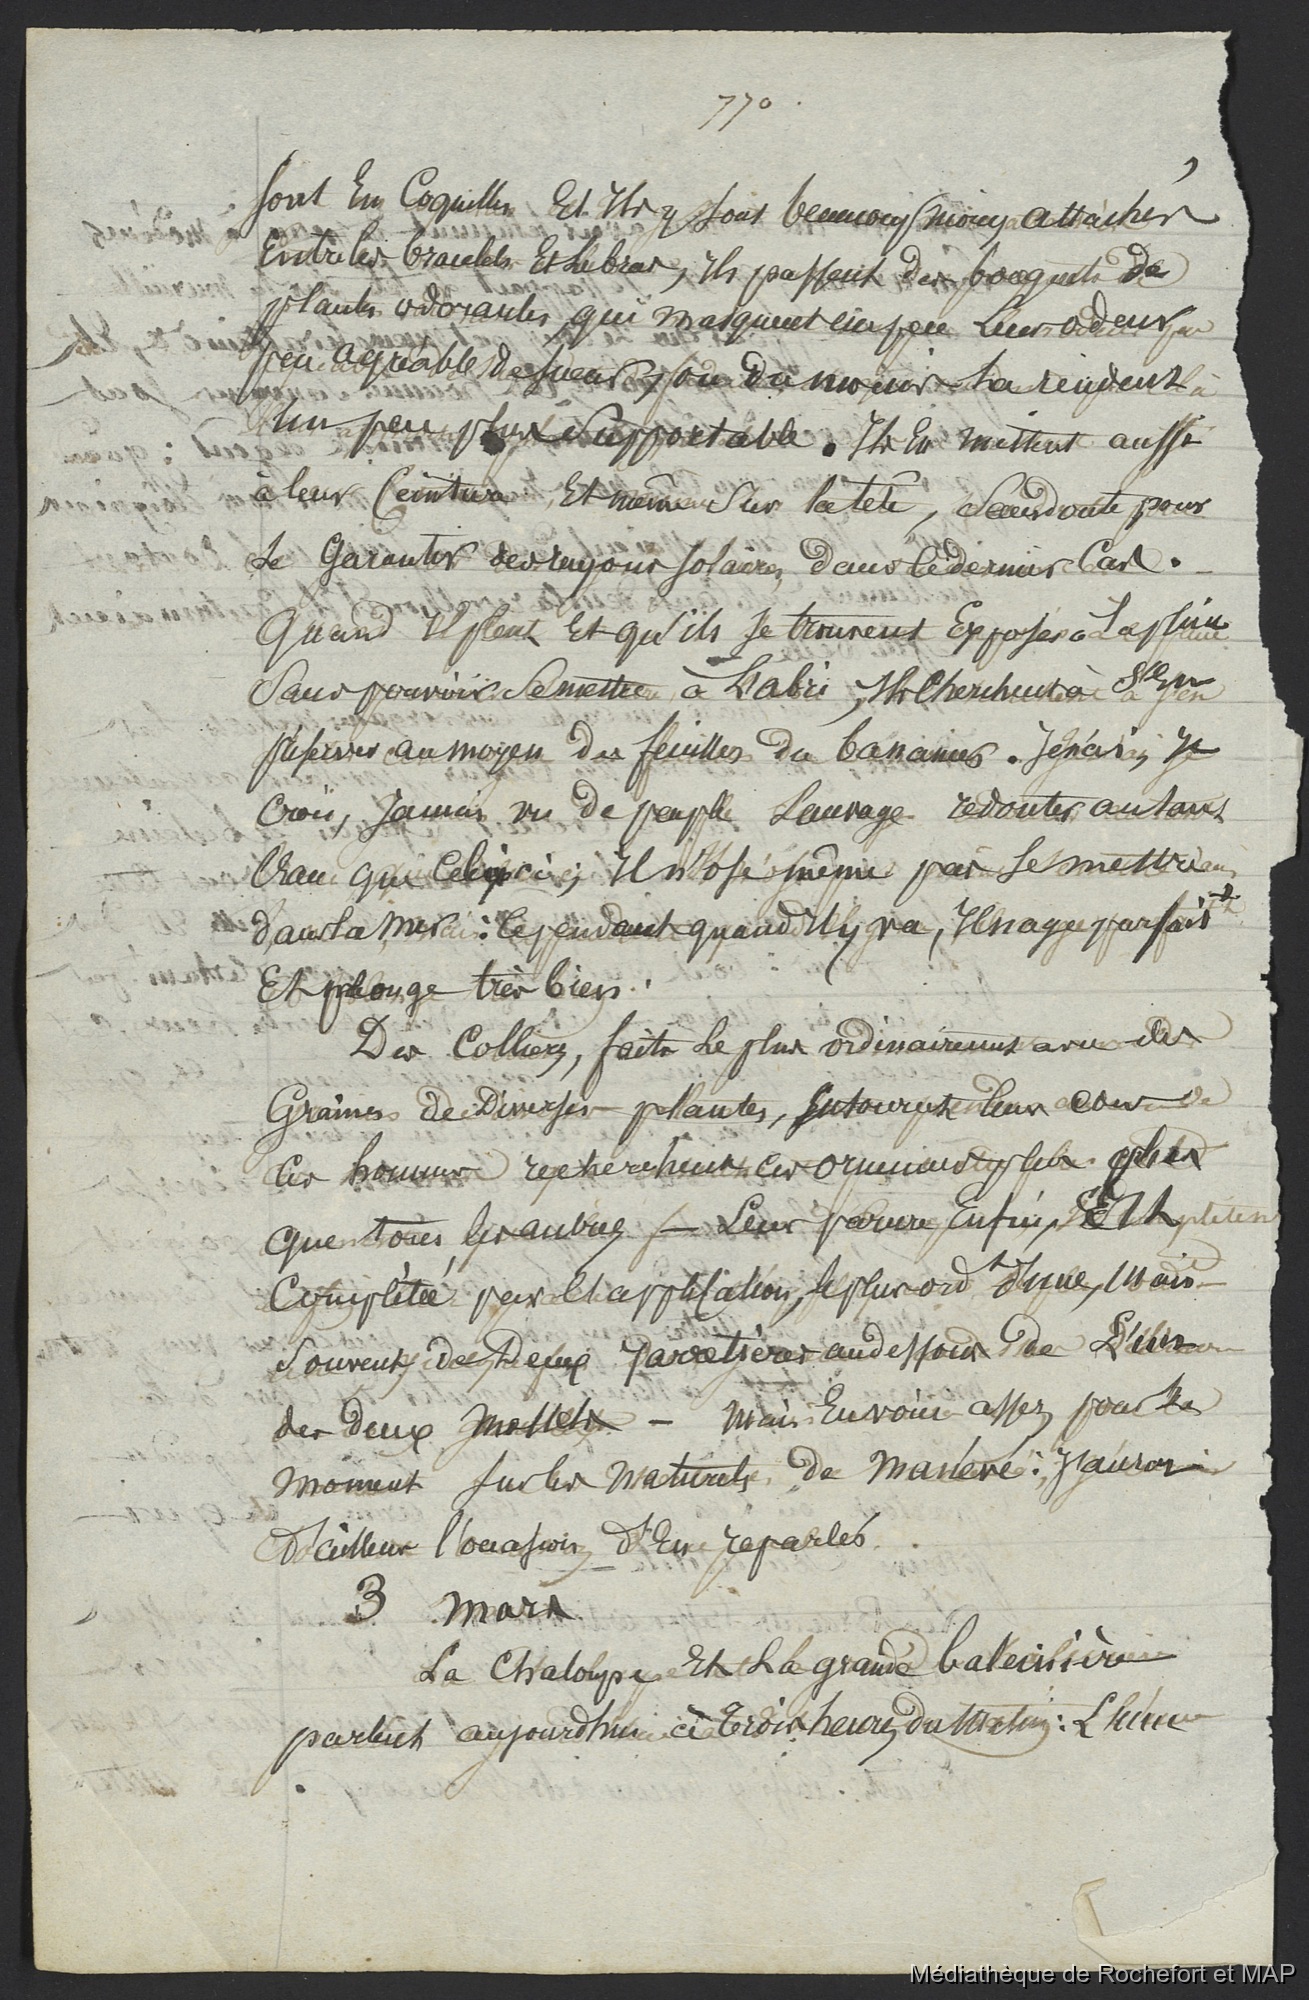 770
sont En Coquilles Et Ils y sont beaucoup moins attachés
Entre les bracelets Et Le bras, ils passent des bouquets de
plantes odorantes qui masquent un peu Leur odeur
peu agréable de sueur, ou du moins La rendent
un peu plus Supportable. Ils En mettent aussi
à leur Ceinture Et même Sur la tête, Sans doute pour
Se Garantir des rayons solaires, dans ce dernier Cas.
Quand il pleut Et qu'ils se trouvent Exposés a La pluie
Sans pouvoir Se mettre à L'abri, Ils Cherchent à S'En
préserver au moyen des feuilles du bananier. Je n'ai, Je
Crois, Jamais vu de peuple Sauvage redouter autant
L'eau que Celui ci; Il n'ose même pas Se mettre
dans La Mer: Cependant quand Il y va, Il nage parfait.t
Et plonge très bien.
Des Colliers, faits Le plus ordinairement avec des
Graines de Diverses plantes, Entourent leur cou
Ces hommes recherchent ces ornements plus
que tous les autres — Leur parure Enfin, Est
Complétée par L'application, le plus ord.t d'une, Mais
Souvent de Deux Jarretières au dessous de L'un
des deux Mollets — Mais En voici assez pour Le
moment Sur les Naturels de Manévé: J'aurai
D'ailleurs l'occasion d'En reparler.
3 Mars
La Chaloupe Et La grande baleinière
partent aujourdhui à trois heures du Matin: L'une
Médiathèque de Rochefort et MAP